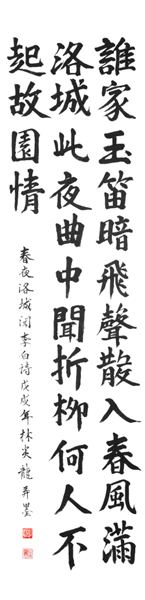 誰家玉笛暗飛聲散入春風滿
洛城此夜曲中聞折柳何人不
起故園情
春夜洛城闻李白诗戊戌年林炎龍弄墨